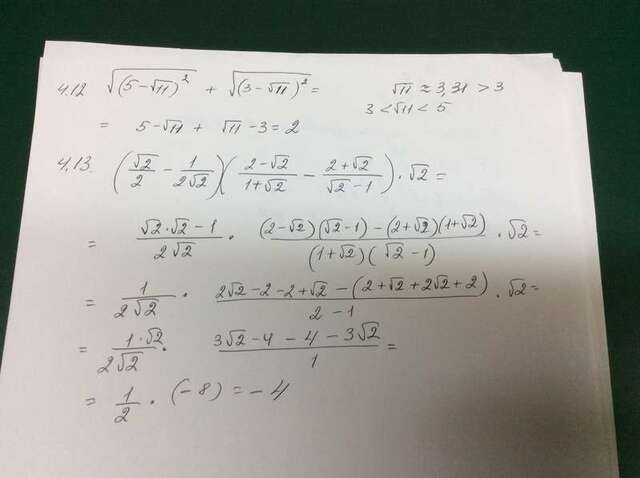 4.12 √(5-√11)² + √(3-√11)² = √11 ≈ 3,31 > 3
3 < √11 < 5
= 5-√11 + √11 - 3 = 2
4.13. (√2/2 - 1/(2√2)) ((2-√2)/(1+√2) - (2+√2)/(√2-1)) · √2 =
= (√2·√2 - 1)/(2√2) · ((2-√2)(√2-1) - (2+√2)(1+√2))/((1+√2)(√2-1)) · √2 =
= 1/(2√2) · (2√2-2-2+√2-(2+√2+2√2+2))/(2-1) · √2 =
= (1·√2)/(2√2) · (3√2-4-4-3√2)/1 =
= 1/2 · (-8) = -4